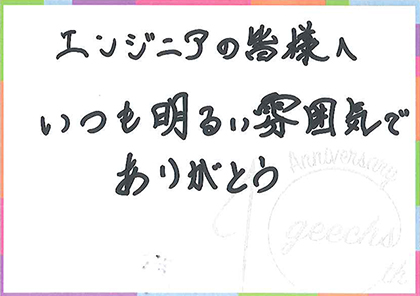 エンジニアの皆様へ
いつも明るい雰囲気で
ありがとう
10
Anniversary
geechs
th